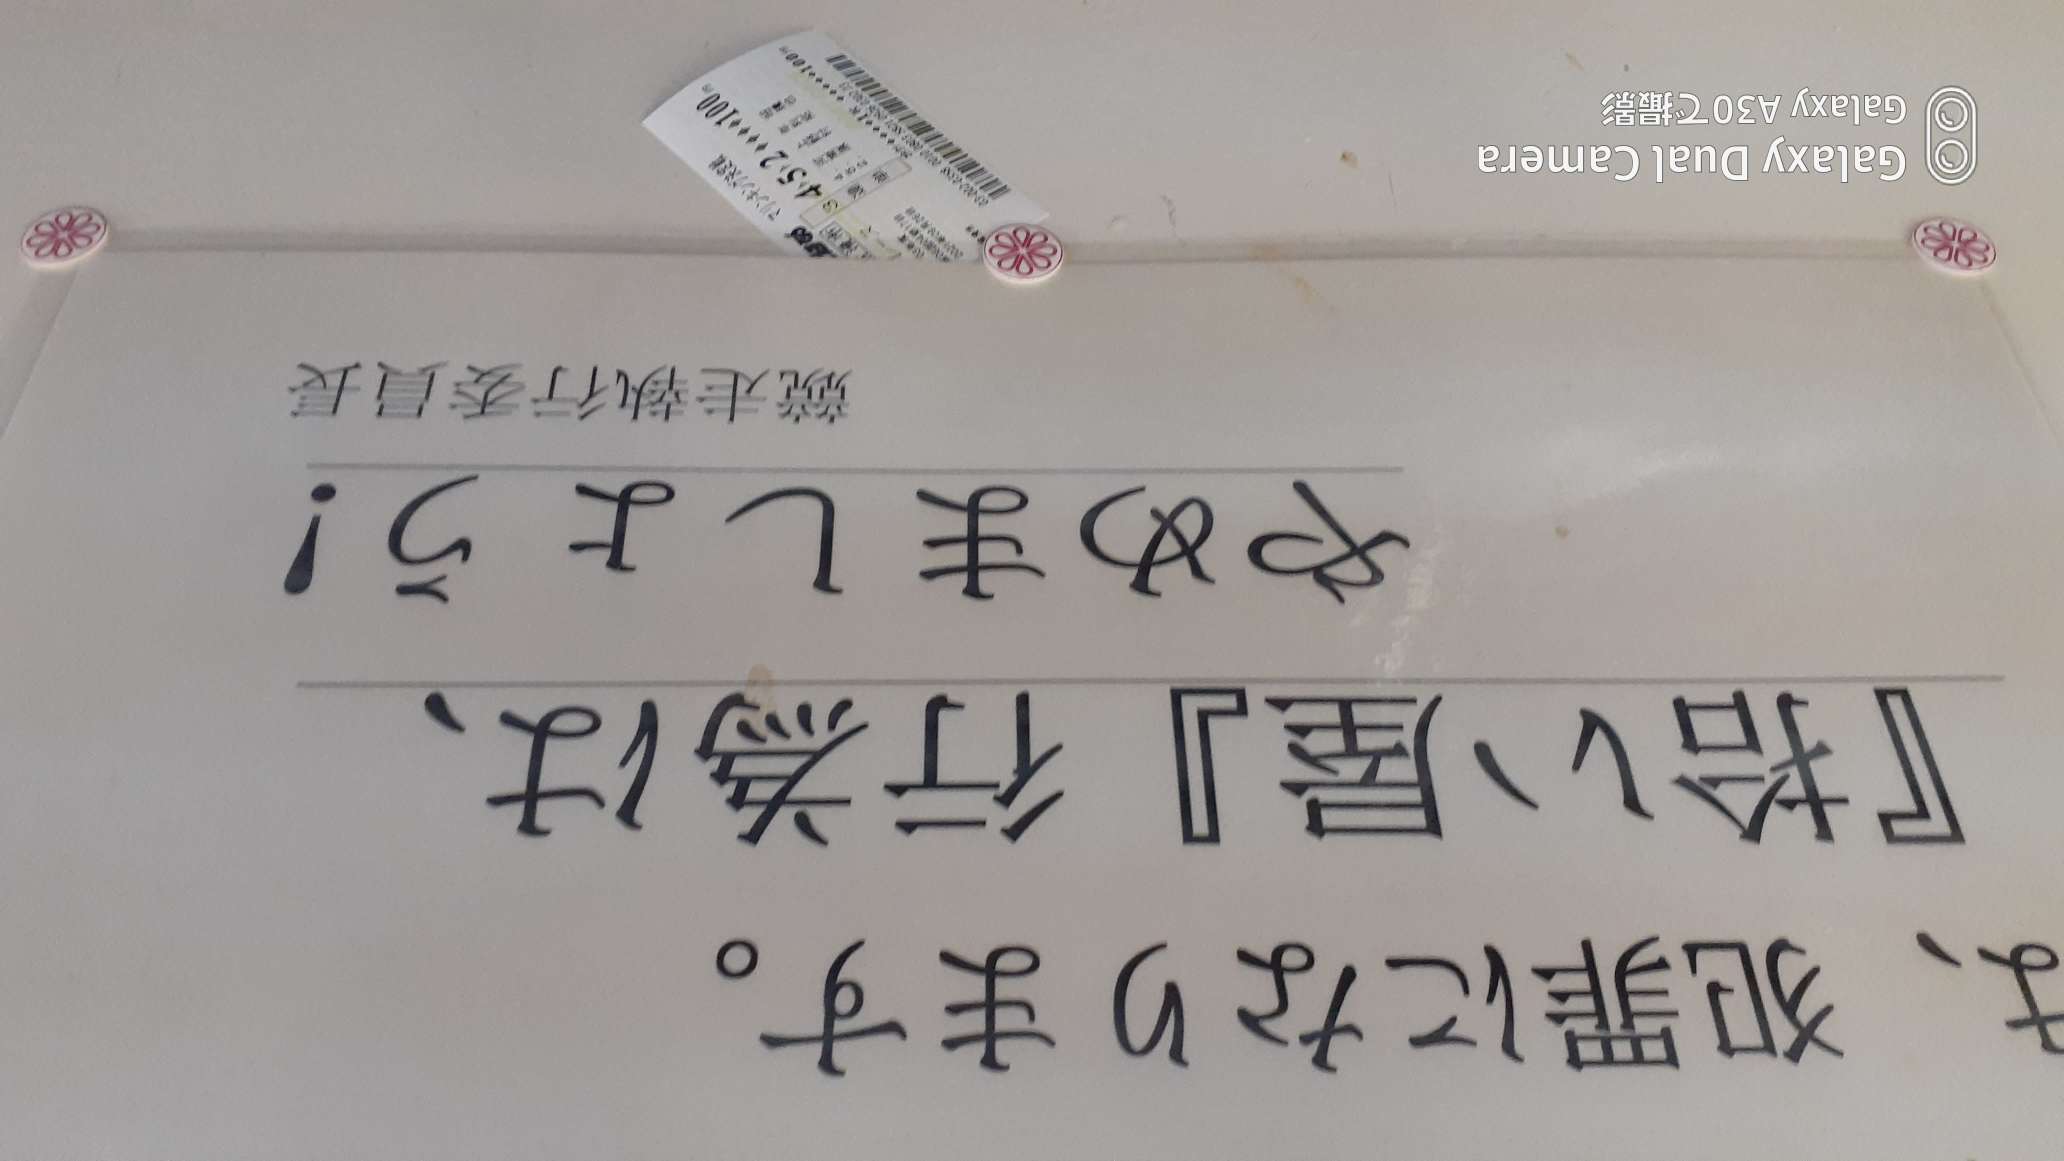 は、犯罪になります。
『拾い屋』行為は、
やめましょう!
競走執行委員長
4-5-2 ♦♦♦♦100円
Galaxy Dual Camera
Galaxy A30で撮影